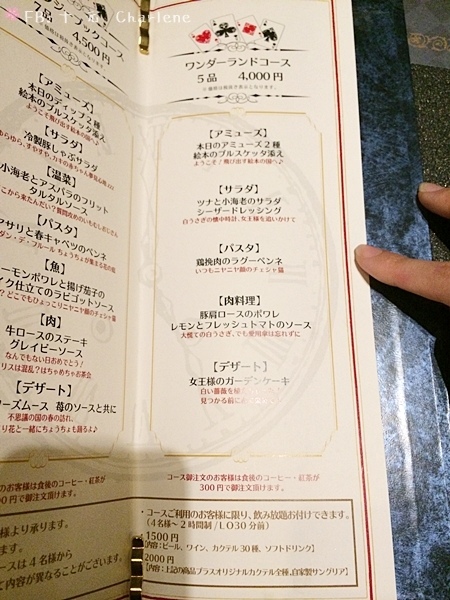 FB: Charlene
7品 4,500円
【アミューズ】
本日のディップ2種
絵本のブルスケッタ添え
ようこそ飛び出す絵本の国へ♪
【サラダ】
冷製豚しゃぶサラダ
【温菜】
小海老とアスパラのフリット
タルタルソース
【パスタ】
アサリと春キャベツのペンネ
【魚】
サーモンポワレと揚げ茄子の
イク仕立てのラビゴットソース
どこでもひょっこりニヤニヤ顔のチェシャ猫
【肉】
牛ロースのステーキ
グレイビーソース
なんでもない日おめでとう!
リスは混乱?はちゃめちゃお茶会
【デザート】
ーズムース 苺のソースと共に
不思議の国の春の訪れ、
り花と一緒にちょうちょも踊るよ♪
のお客様は食後のコーヒー・紅茶が
0円で御注文頂けます。
様より承ります。
ースは4名様から
と内容が異なることがございます。
ワンダーランドコース
5品 4,000円
※価格は税抜き表示となります。
【アミューズ】
本日のアミューズ2種
絵本のブルスケッタ添え
ようこそ!飛び出す絵本の国へ♪
【サラダ】
ツナと小海老のサラダ
シーザードレッシング
白うさぎの懐中時計、女王様を追いかけて
【パスタ】
鶏挽肉のラグーペンネ
いつもニヤニヤ顔のチェシャ猫
【肉料理】
豚肩ロースのポワレ
レモンとフレッシュトマトのソース
大慌ての白うさぎ、でも愛用傘は忘れずに
【デザート】
女王様のガーデンケーキ
白い薔薇を
見つかる前に
コース御注文のお客様は食後のコーヒー・紅茶が
300円で御注文頂けます。
・コースご利用のお客様に限り、飲み放題お付けできます。
(4名様~2時間制/LO30分前)
・1500円
【内容:ビール、ワイン、カクテル30種、ソフトドリンク】
・2000円
【内容:上記の商品プラスオリジナルカクテル全種、自家製サングリア】